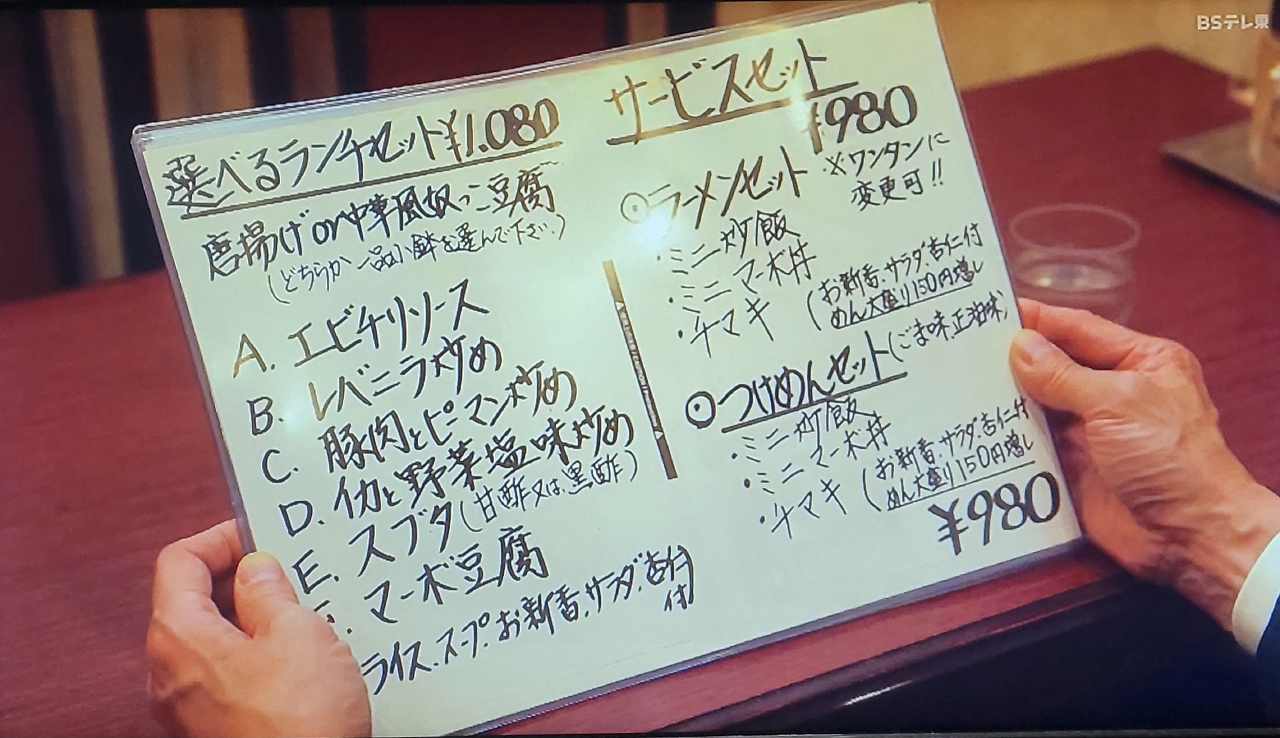 BSテレ東
選べるランチセット¥1.080
唐揚げor中華風奴っこ豆腐
(どちらか一品小鉢を選んで下さい)
A. エビチリソース
B. レバニラ炒め
C. 豚肉とピーマン炒め
D. イカと野菜塩味炒め
E. スブタ(甘酢又は黒酢)
マーボ豆腐
ライス、スープ、お新香、サラダ、杏仁付
サービスセット
¥980
◎ラーメンセット
※ワンタンに
変更可!!
・ミニ炒飯
・ミニマーボ丼
・チマキ
(お新香、サラダ、杏仁付
めん大盛り150円増し
◎つけめんセット(ごま味、正油味)
・ミニ炒飯
・ミニマーボ丼
・チマキ
(お新香、サラダ、杏仁付
めん大盛り150円増し
¥980